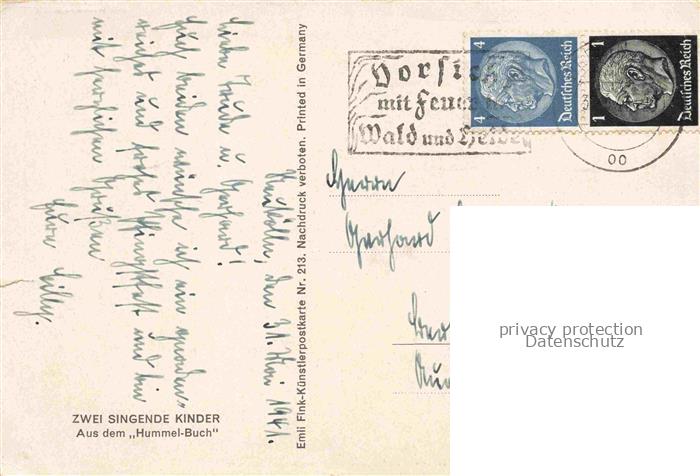 Neukölln, den 31. Mai 1941.
Liebe Trude u. Gerhard!
Euch beiden wünsche ich ein gesundes
und frohes Pfingstfest und bin
mit herzlichen Grüßen
Eure Cilly.
ZWEI SINGENDE KINDER
Aus dem „Hummel-Buch"
Emil Fink-Künstlerpostkarte Nr. 213. Nachdruck verboten. Printed in Germany
Vorsicht
mit Feuer in
Wald und Heide
4 4
Deutsches Reich
1 1
Deutsches Reich
00
Herrn
Gerhard
privacy protection
Datenschutz